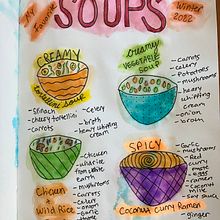 My Favorite
SOUPS
Winter
2022
CREAMY
tortellini soup
- Spinach
- cheesy tortellini
- carrots
- celery
- broth
- heavy whipping cream
creamy
VEGETABLE
SOUP
- carrots
- celery
- potatoes
- mushrooms
- heavy whipping cream
- onion
- broth
Chicken
+
Wild Rice
- chicken
- wild rice
- mushrooms
- carrots
- celery
- onion
- garlic
SPICY
Coconut Curry Ramen
- garlic
- mushrooms
- Red curry
- ramen
- coconut milk
- soy sauce
- ginger